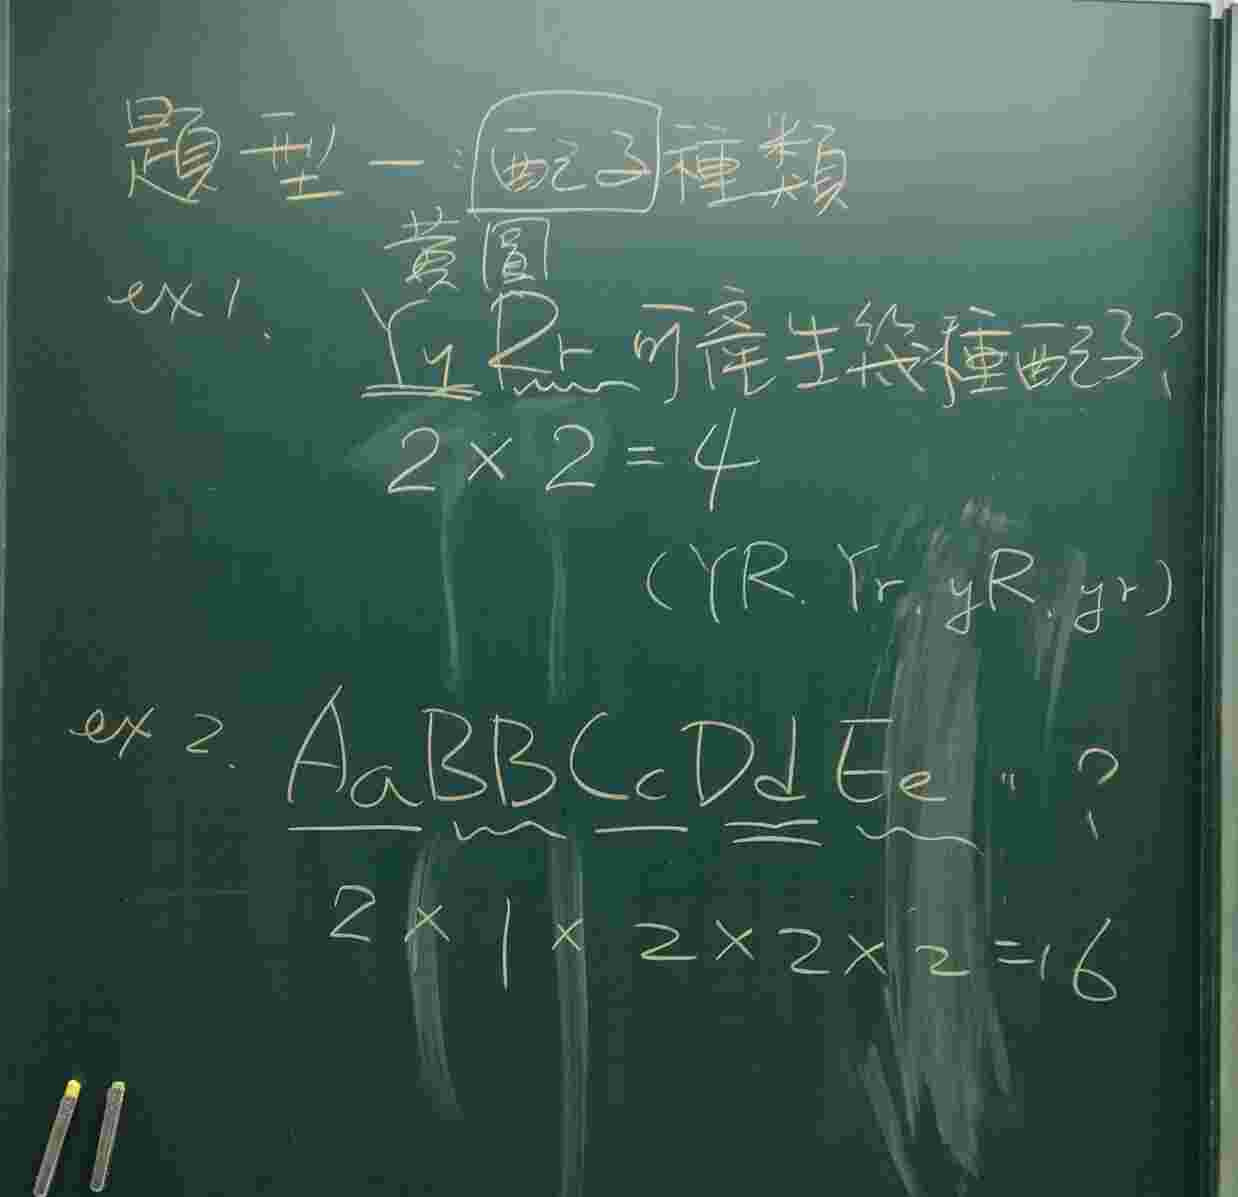 題型一:配子種類
黃圓
ex1. YyRr可產生幾種配子?
2×2=4
(YR. Yr. yR. yr)
ex2. AaBBCcDdEe " ?
2×1×2×2×2=16